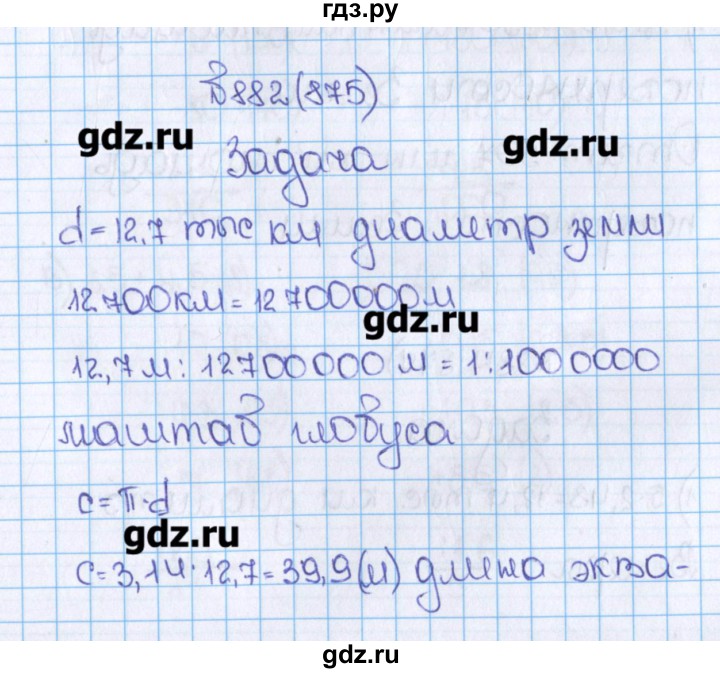 гдз.ру
№882(875)
gdz.ru
gdz.ru
Задача
d=12,7 тыс км диаметр земли
12700км=12700000м
gdz.ru
12,7м:12700000м=1:1000000
маштаб глобуса
c=π·d
gdz.ru
c=3,14·12,7=39,9(м) длина эква-
gdz.ru